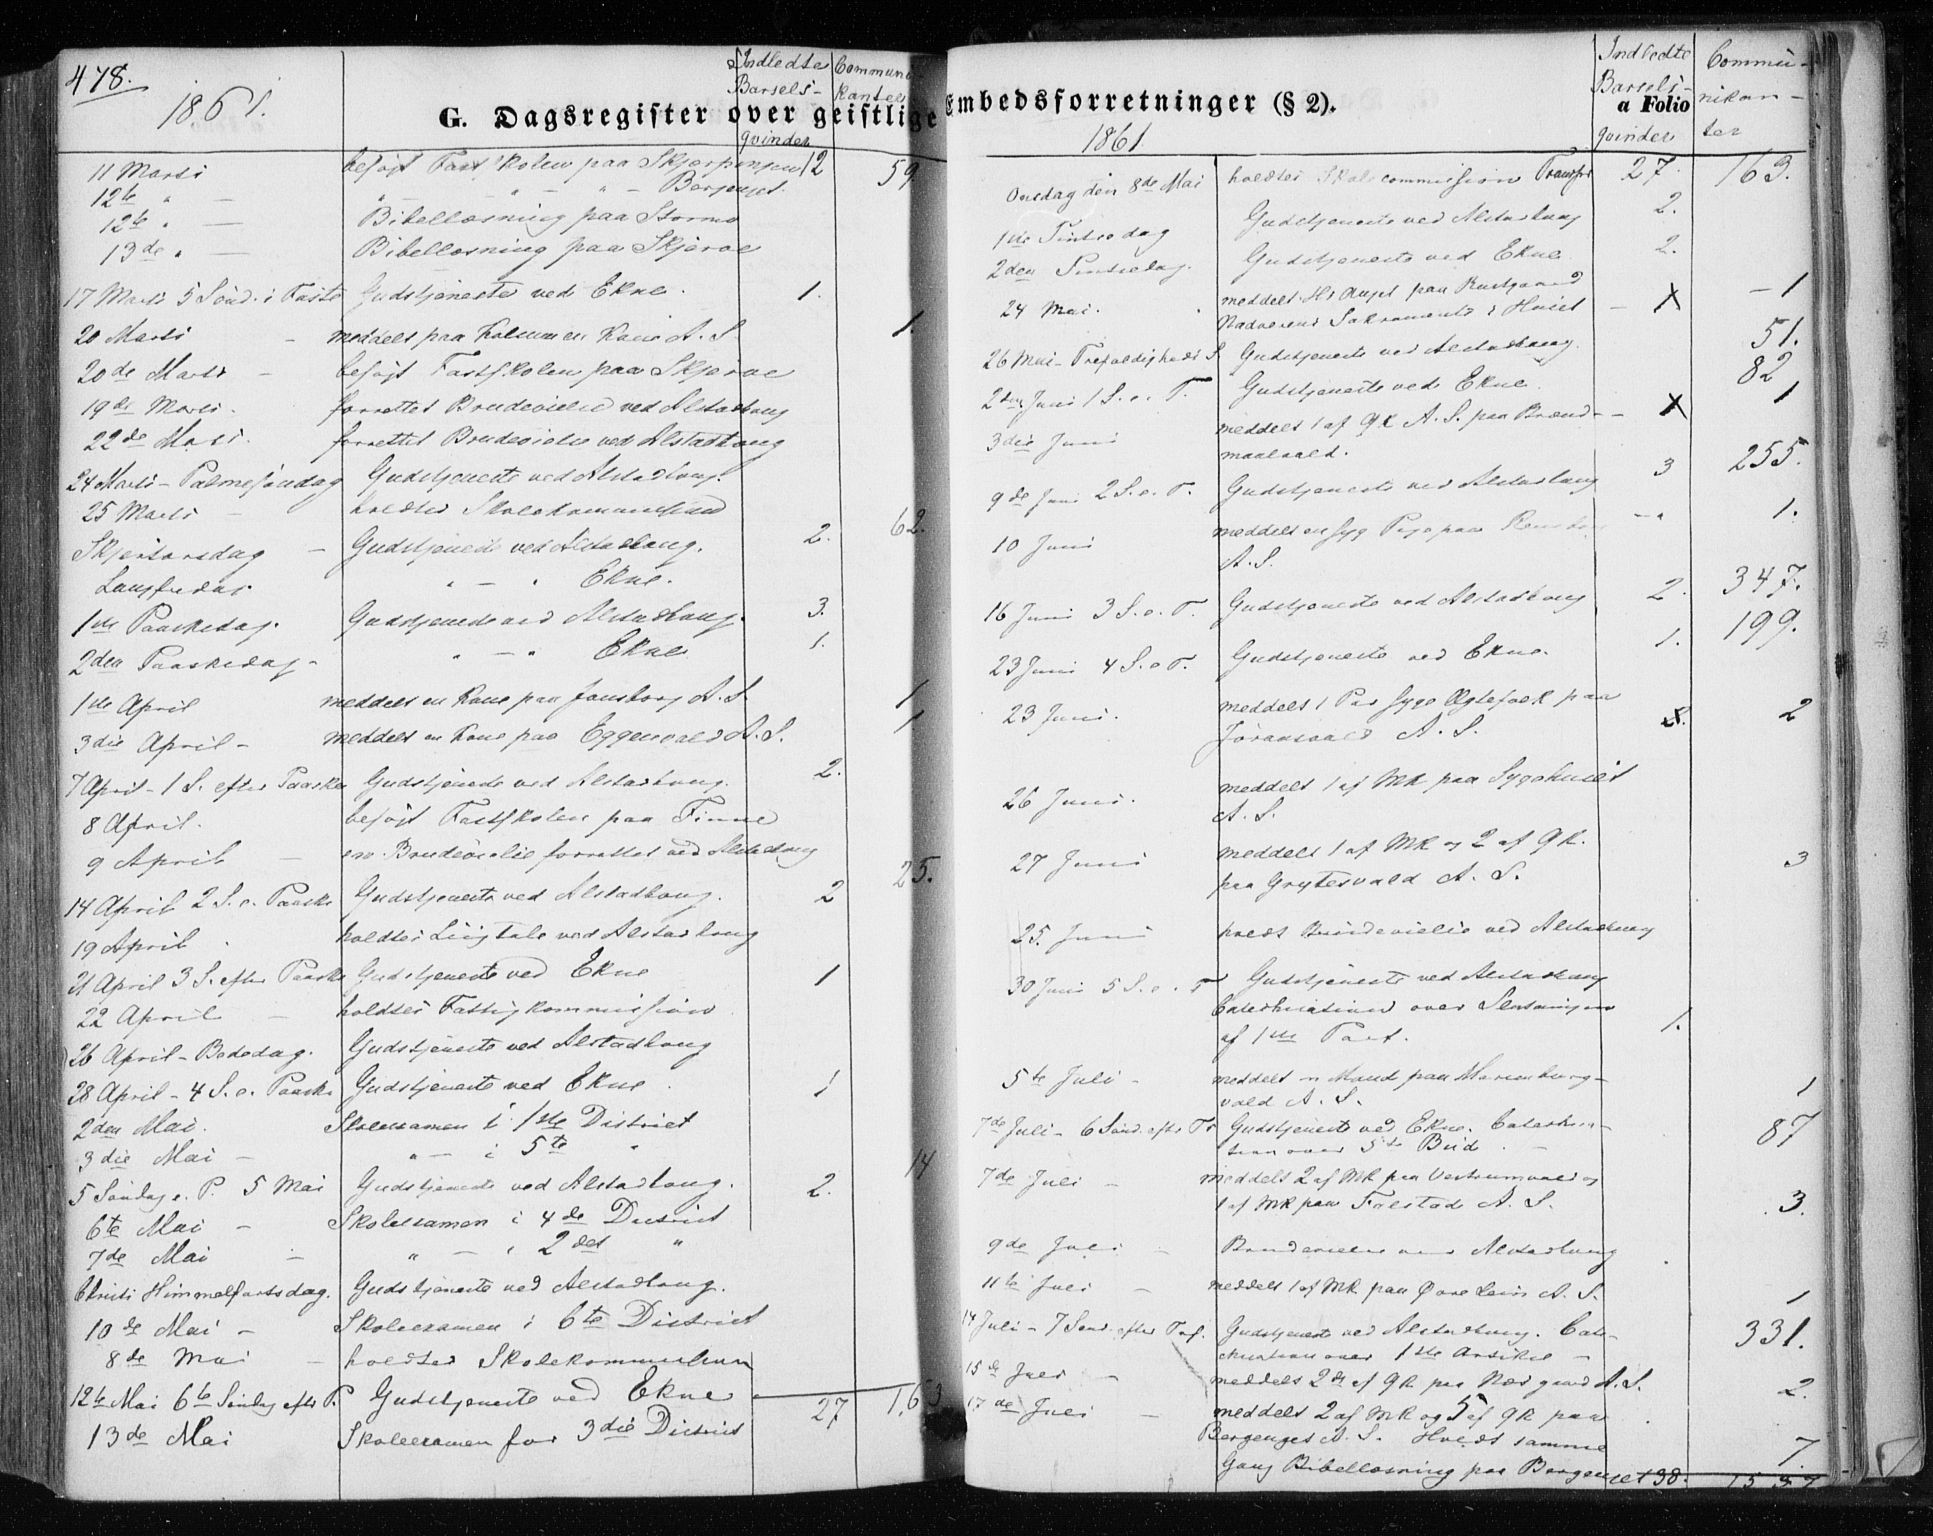 478.
1861.
Indledte Barsels-qvinder
Communikantes
G. Dagsregister over geistlige
11 Marts besøgt Fast Skolen paa Skjerpenjen 12 59
12te " — " — " — Bergenget.
12te " — Bibellæsning paa Stormo
13de " — Bibellæsning paa Skjerve
17 Marts 5 Sønd. i Faste Gudstjeneste ved Ekne. 1.
20 Marts — meddelt paa Kone A. S 1.
20de Marts — besøgt Fastskolen paa Skjerve
19de Marts. forrettet Brudevielse ved Alstadhoug
22de Marts. forrettet Brudevielse ved Alstadhoug
24 Marts — Palmesøndag Gudstjeneste ved Alstadhoug.
25 Marts — holdtes Skolekommission
Skjertorsdag — Gudstjeneste ved Alstadhoug. 2. 62.
Langfredag. " — " Ekne.
1ste Paaskedag. Gudstjeneste ved Alstadhoug. 3.
2den Paaskedag — " — " Ekne 1.
1ste April meddelt en Kone paa Jonsborg A. S. 1
3die April — meddelt en Kone paa Eggenvald A. S. 1.
7 April — 1 S. efter Paaske Gudstjeneste ved Alstadhoug. 2.
8 April. besøgt Fastskolen paa Finne
9 April — en Brudevielse forrettet ved Alstadhoug
14 April 2 S. e. Paaske Gudstjeneste ved Alstadhoug. 2 25.
19 April. holdtes Liigtale ved Alstadhoug
21 April 3 S. efter Paaske Gudstjeneste ved Ekne 1
22 April — holdtes Fattigkommission
26 April — Bededag. Gudstjeneste ved Alstadhoug
28 April — 4 S. e. Paaske Gudstjeneste ved Ekne. 1
2den Mai. Skoleexamen i 1ste District
3die Mai — " — i 5te "
5 Søndag e. P. 5 Mai Gudstjeneste ved Alstadhoug. 2. 14
6te Mai — Skoleexamen i 4de District
7de Mai — " — i 2det "
Christi Himmelfartsdag. Gudstjeneste ved Alstadhoug.
10de Mai — Skoleexamen i 6te District
8de Mai — holdtes Skolekommission
12te Mai 6te Søndag efter P. Gudstjeneste ved Ekne 27 163
13de Mai Skoleexamen for 3die District
Embedsforretninger (§ 2).
1861
Indledte Barsels-qvinder
a Folio
Communikanter
Onsdag den 8de Mai holdtes Skolecommission Transport 27. 163.
1ste Pintsedag Gudstjeneste ved Alstadhoug 2.
2den Pintsedag. Gudstjeneste ved Ekne 2.
24 Mai. meddelt paa Rustgaard
Nadverens Sakramente i Huset — X — 1
26 Mai — Trefoldigheds S. Gudstjeneste ved Alstadhoug. 51.
2den Juni 1 S. e. T. Gudstjeneste ved Ekne. 82
3die Juni meddelt 1 af QK A. S. paa Brand- — X 1
maalvald.
9de Juni 2 S. e. T. Gudstjeneste ved Alstadhoug 3 255.
10 Juni meddelt en syg Pige paa — " 1.
A. S.
16 Juni 3 S. e. T. Gudstjeneste ved Alstadhoug 2. 347.
23 Juni 4 S. e T. Gudstjeneste ved Ekne. 1. 199.
23 Juni. meddelt 1 Par syge Ægtefolk paa
Jøransvald A. S. 2
26 Juni. meddelt 1 af MK paa Sygehuset
A. S.
27 Juni meddelt 1 af MK og 2 af QK.
paa Grytesvald A. S. 3
25. Juni holdt Brudevielse ved Alstadhoug
30 Juni 5 S. e. T Gudstjeneste ved Alstadhoug
Catechisation over Slutningen
af 1ste Part. 1.
5te Juli — meddelt en Mand paa Marienborg-
vald A. S. 1
7de Juli — 6 Sønd. efter Tr Gudstjeneste ved Ekne. Catechisa-
tion over 5te Bud. — 87
7de Juli — meddelt 2 af MK paa og
1 af MK paa Falstad A. S. 3.
9de Juli — Brudevielse ved Alstadhoug
11te Juli — meddelt 1 af MK paa Øvre Lein A. S. 1
14 Juli — 7 Sønd. efter Tref. Gudstjeneste ved Alstadhoug. Cate-
chisation over 1ste Artikel — 331.
15de Juli — meddelt 2 af QK paa Nær gaard A. S. 2.
17de Juli — meddelt 2 af MK og 5 af QK paa
Bergenget A. S. Holdt samme
Gang Bibellæsning paa Bergenget 38. 7.
1537